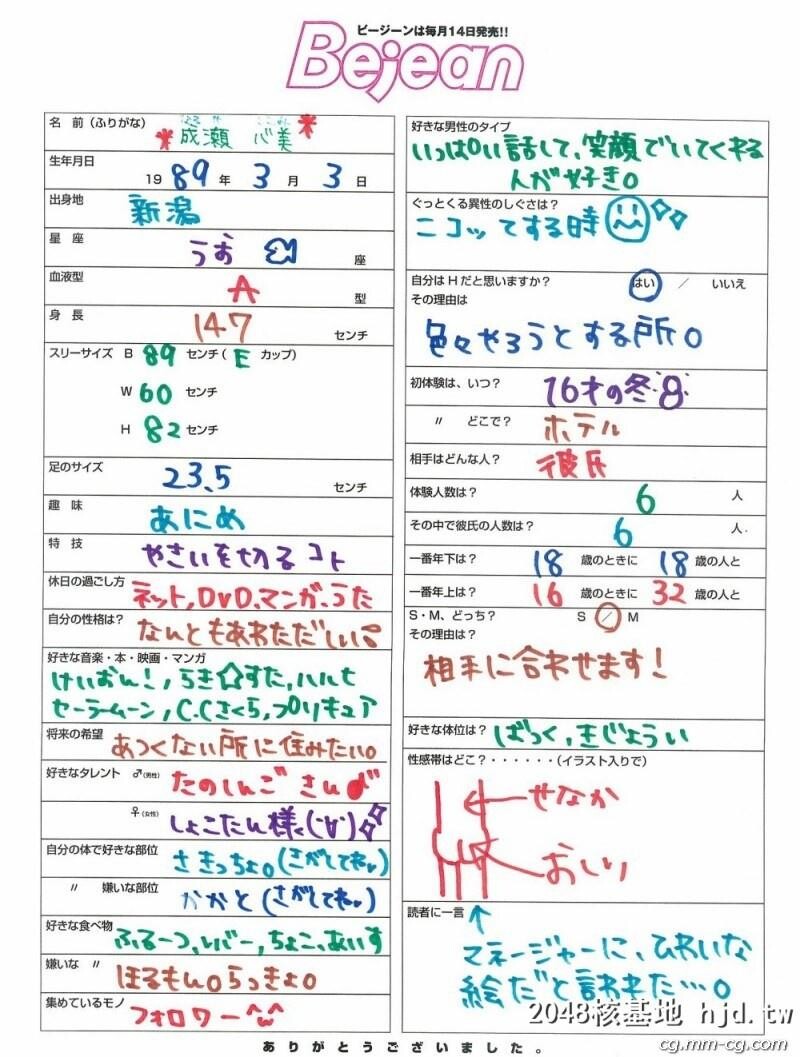 ビージーンは毎月14日発売!!
Bejean
名 前 (ふりがな)
成瀬 心美
生年月日
19 89 年 3 月 3 日
出身地
新潟
星 座
うお 座
血液型
A 型
身 長
147 センチ
スリーサイズ B 89 センチ( E カップ)
W 60 センチ
H 82 センチ
足のサイズ
23.5 センチ
趣 味
あにめ
特 技
やさいを切るコト
休日の過ごし方
ネット,DVD、マンガ、うた
自分の性格は?
なんともあわただしい。
好きな音楽・本・映画・マンガ
けいおん!,らき☆すた,ハルヒ
セーラームーン,C.Cさくら,プリキュア
将来の希望
あつくない所に住みたい。
好きなタレント ♂(男性)
たのしんご さん
♀(女性)
しょこたん様
自分の体で好きな部位
さきっちょ。(さがしてねっ)
〃 嫌いな部位
かかと(さがしてねっ)
好きな食べ物
ふるーつ,レバー,ちょこ,あいす
嫌いな 〃
ほるもん。らっきょ。
集めているモノ
フォロワー^ω^
好きな男性のタイプ
いっぱい話して,笑顔でいてくれる
人が好き。
ぐっとくる異性のしぐさは?
ニコッてする時
自分はHだと思いますか? はい / いいえ
その理由は
色々やろうとする所。
体験人数は?
6 人
その中で彼氏の人数は?
6 人.
一番年下は? 18 歳のときに 18 歳の人と
S・M、どっち? S / M
その理由は?
相手に合わせます!
好きな体位は? ばっく,きじょうい
性感帯はどこ?・・・・・・(イラスト入りで)
せなか
おしり
読者に一言 ↑
マネージャーに,ひわいな
絵だと言われた…。
2048核基地 hjd.tw
cg.mm-cg.com
ありがとうございました。